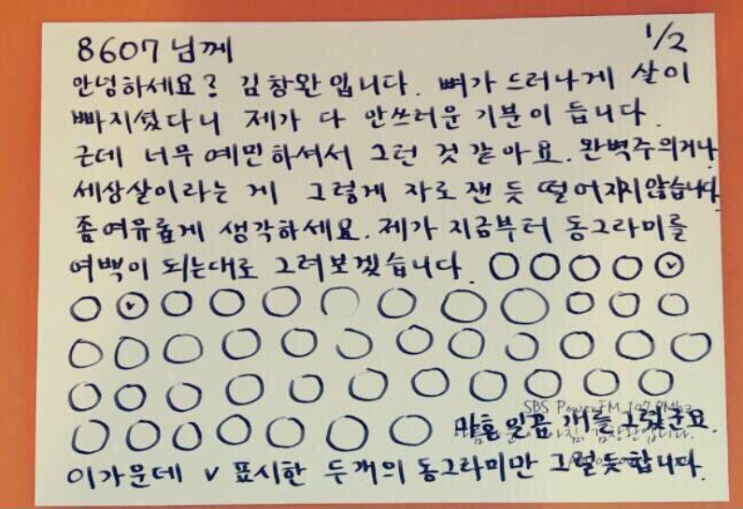 8607님께 1/2
안녕하세요? 김창완입니다. 뼈가 드러나게 살이
빠지셨다니 제가 다 안쓰러운 기분이 듭니다.
근데 너무 예민하셔서 그런 것 같아요. 완벽주의거나
세상살이라는 게 그렇게 자로 잰 듯 떨어지지 않습니다
좀 여유롭게 생각하세요. 제가 지금부터 동그라미를
여백이 되는대로 그려보겠습니다.
SBS PowerFM
마흔 일곱 개를 그렸군요.
이 가운데 v 표시한 두개의 동그라미만 그럴듯합니다.